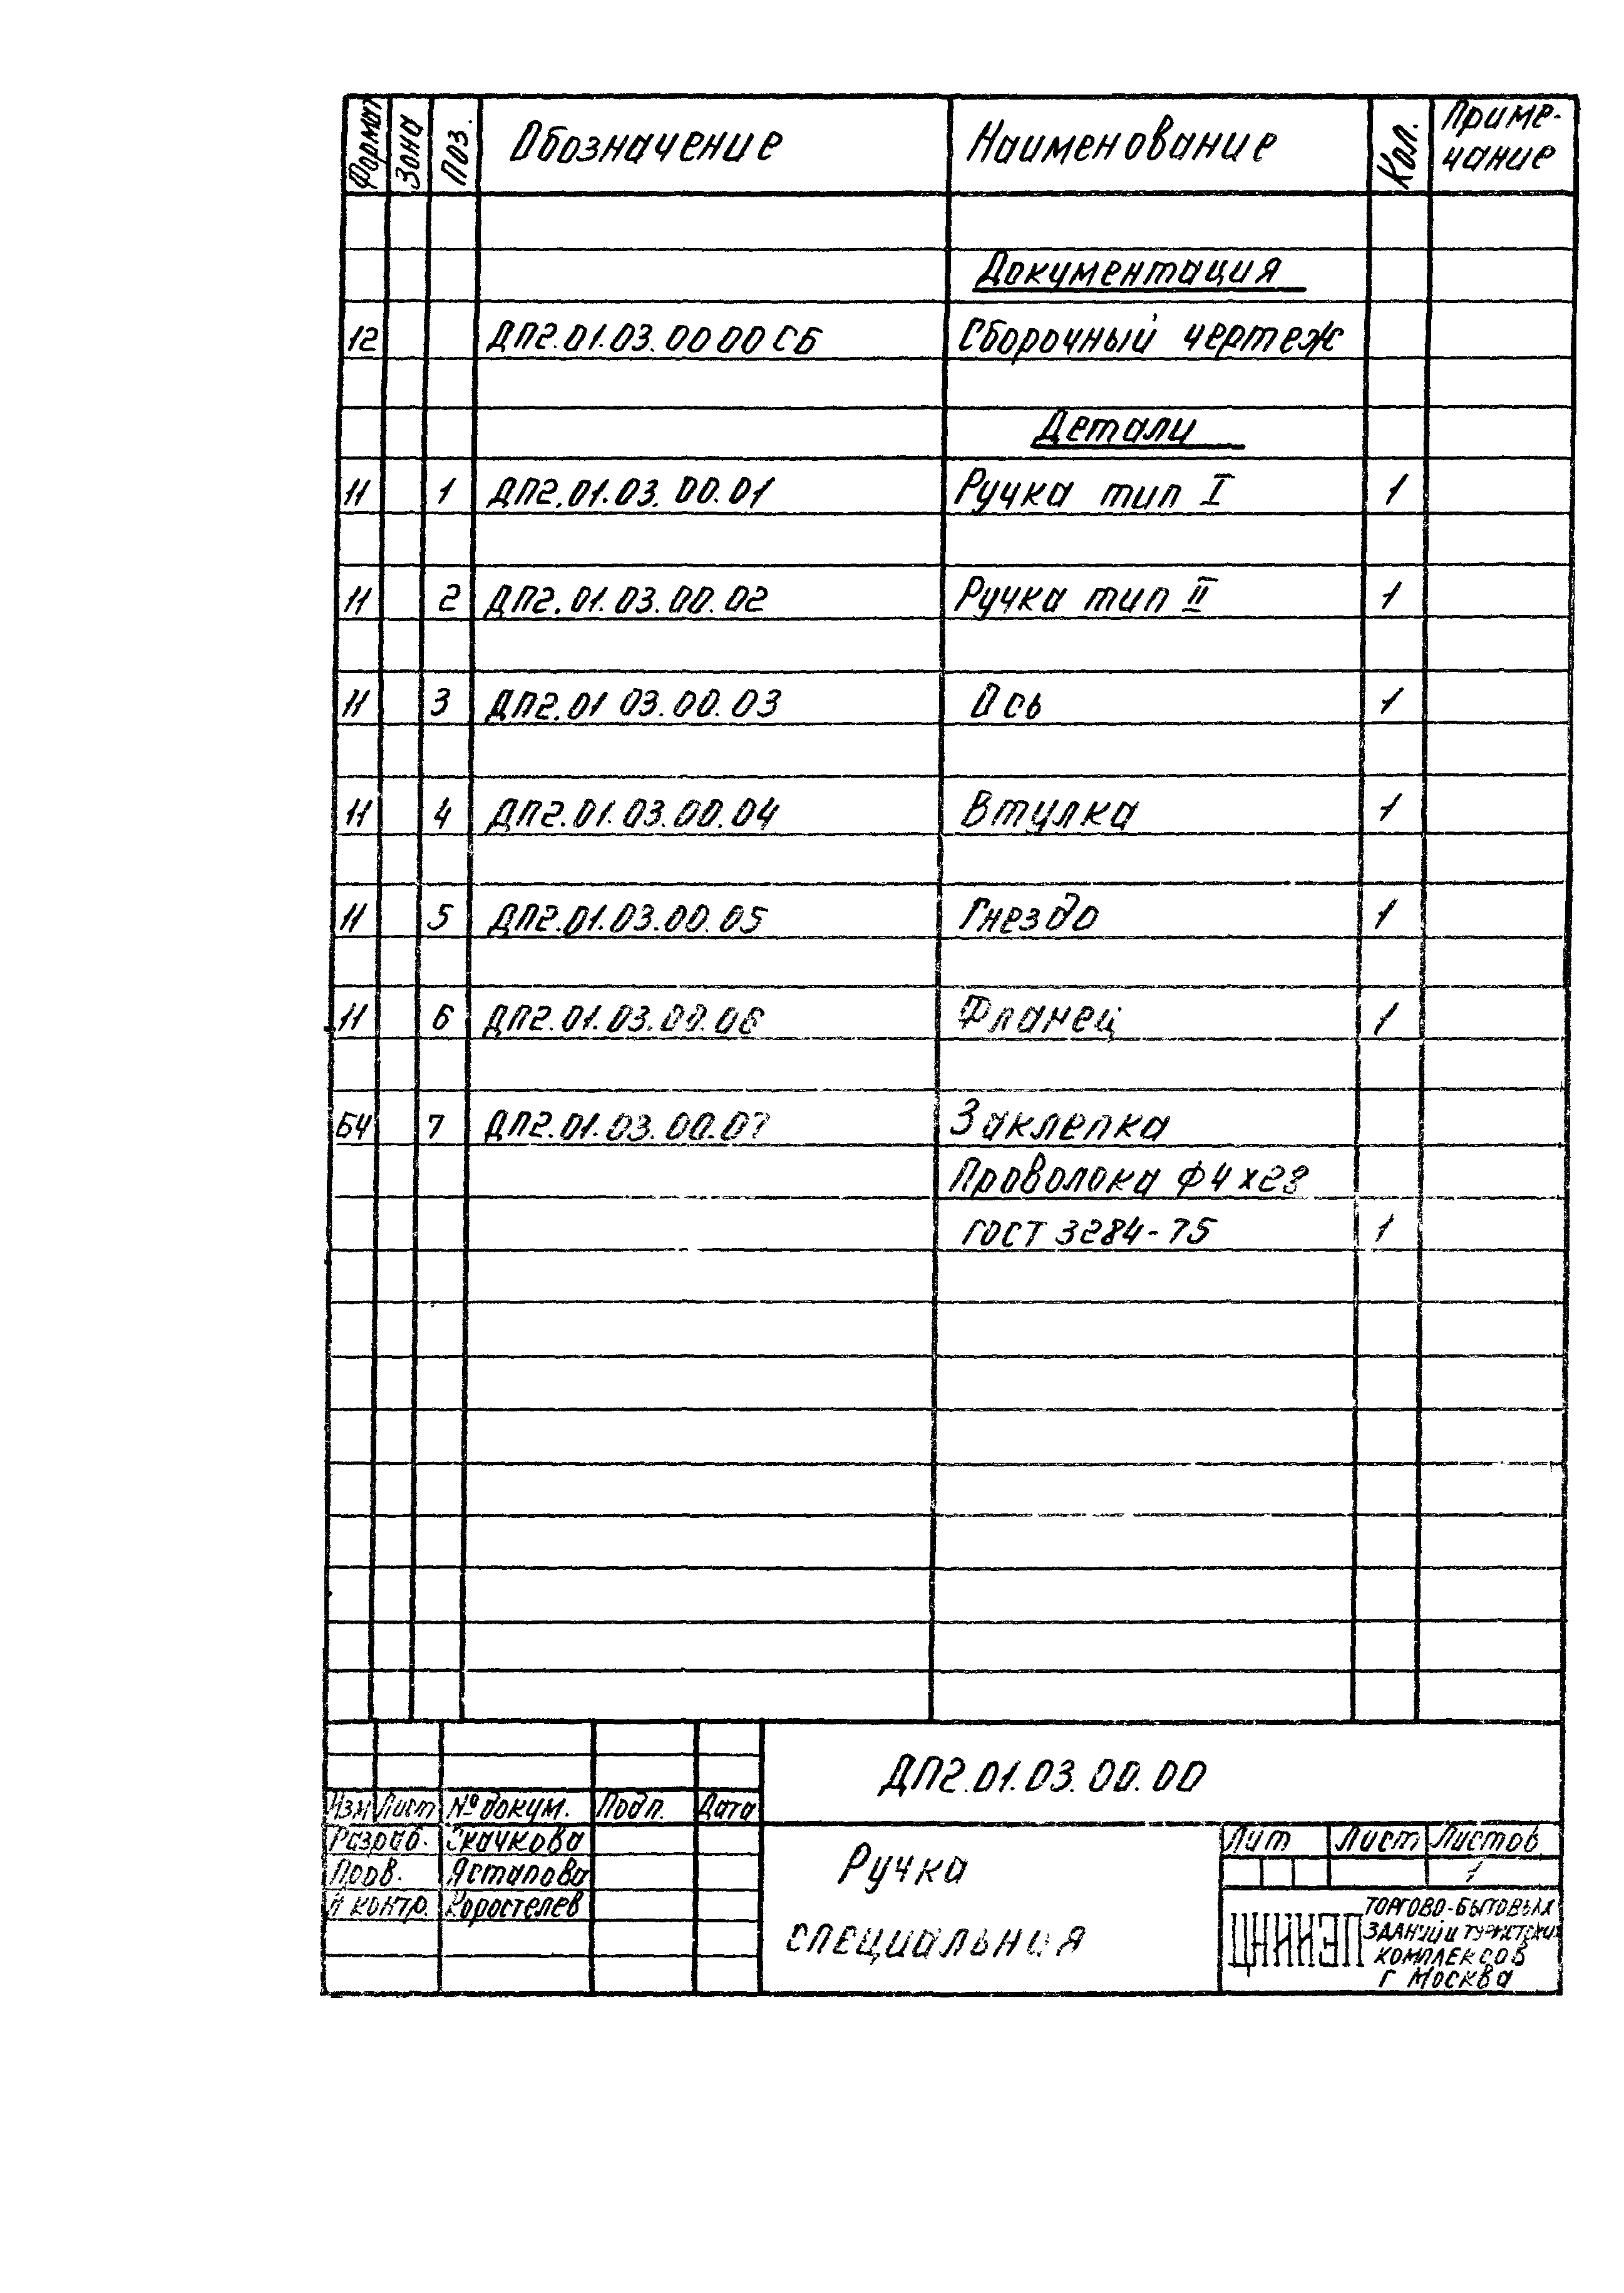 Формат Зона Поз. Обозначение Наименование Кол. Приме-
чание
Документация
12 ДП2.01.03.00 00 СБ Сборочный чертеж
Детали
11 1 ДП2.01.03.00.01 Ручка тип I 1
11 2 ДП2.01.03.00.02 Ручка тип II 1
11 3 ДП2.01 03.00.03 Ось 1
11 4 ДП2.01.03.00.04 Втулка 1
11 5 ДП2.01.03.00.05 Гнездо 1
11 6 ДП2.01.03.00.06 Фланец 1
БЧ 7 ДП2.01.03.00.07 Заклепка
Проволока Ф4х28
ГОСТ 3284-75 1
ДП2.01.03.00.00
Изм Лист № докум. Подп. Дата
Разраб. Скачкова
Пров. Ястапова
Н контр. Коростелев
Ручка
специальная
Лит Лист Листов
1
ЦНИИЭП ТОРГОВО-БЫТОВЫХ
ЗДАНИЙ И ТУРИСТСКИХ
КОМПЛЕКСОВ
г Москва